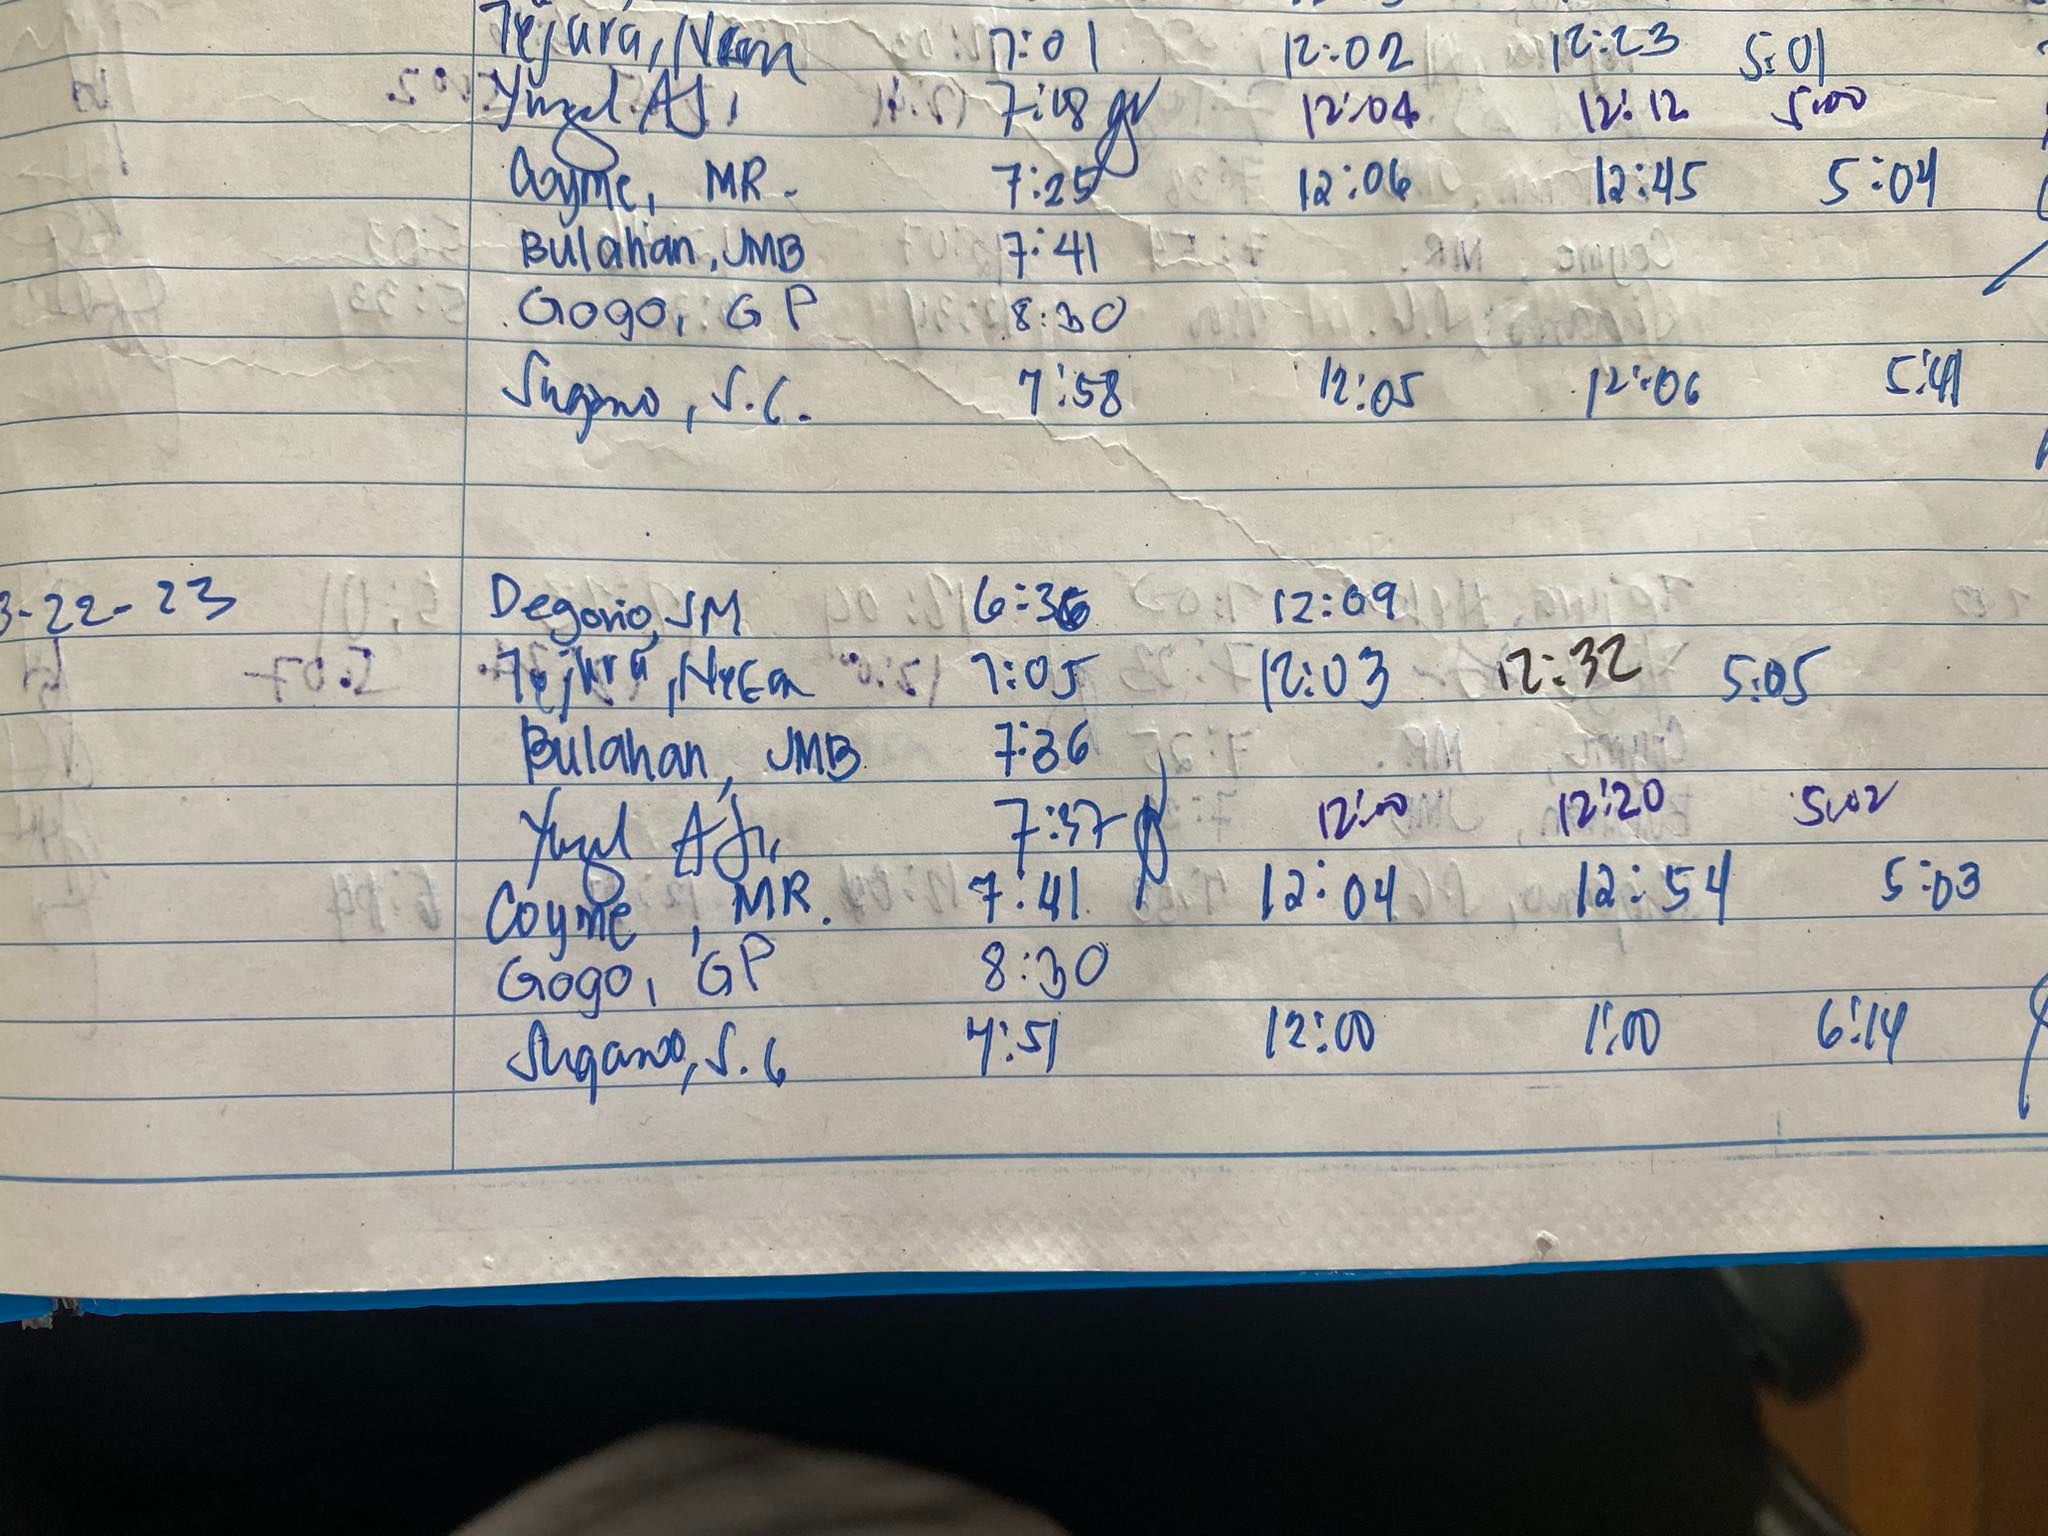 Tejura, 7:01 12:02 12:23 5:01
AJ. 7:18 12:04 12:12 5:00
Coyme, MR. 7:25 12:06 12:45 5:04
Bulahan, JMB 7:41
Gogo, GP 8:30
Sugano, S.C. 7:58 12:05 12:06 5:41
3-22-23 Degorio, JM 6:36 12:09
Tejura, 7:05 12:03 12:32 5:05
Bulahan, JMB 7:36
AJ. 7:37 12:00 12:20 5:02
Coyme, MR. 7:41 12:04 12:54 5:03
Gogo, GP 8:30
Sugano, S.C 7:51 12:00 1:00 6:14